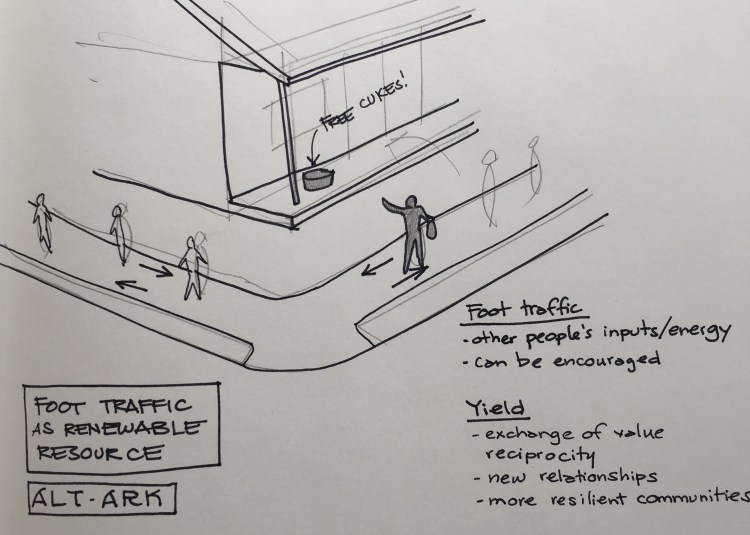 FREE CUKES!
Foot traffic
- other people's inputs/energy
- can be encouraged
Yield
- exchange of value
reciprocity
- new relationships
- more resilient communities
FOOT TRAFFIC
AS RENEWABLE
RESOURCE
ALT-ARK